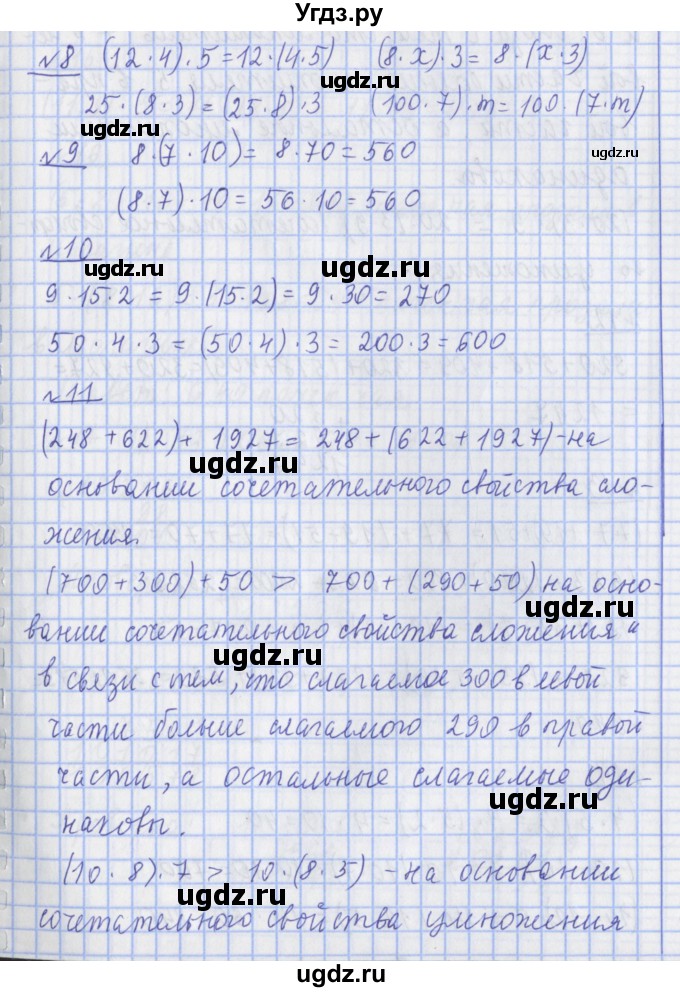 Угдз.ру
№8 (12·4)·5=12·(4·5) (8·x)·3= 8·(x·3)
25·(8·3)=(25·8)·3 (100·7)·m=100·(7·m)
ugdz.ru
ugdz.ru
№9 8·(7·10)= 8·70=560
(8·7)·10= 56·10=560
№10
ugdz.ru
ugdz.ru
9·15·2 = 9·(15·2)= 9·30=270
50·4·3 = (50·4)·3= 200·3=600
№11
(248+622)+ 1927= 248+(622+1927)-на
ugdz.ru
ugdz.ru
основании сочетательного свойства сло-
жения.
(700+300)+50 > 700+(290+50) на осно-
ugdz.ru
вании сочетательного свойства сложения и
ugdz.ru
в связи с тем, что слагаемое 300 в левой
части больше слагаемого 290 в правой
части, а остальные слагаемые оди-
ugdz.ru
наковы.
(10·8)·7 > 10·(8·5) -на основании
ugdz.ru
сочетательного свойства умножения
ugdz.ru